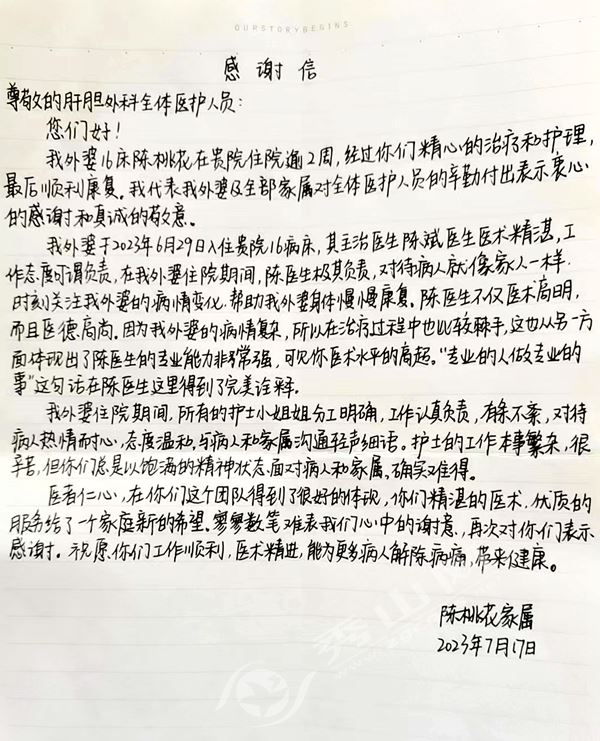 OURSTORYBEGINS
感谢信
尊敬的肝胆外科全体医护人员:
您们好!
我外婆16床陈桃花在贵院住院逾2周,经过你们精心的治疗和护理,
最后顺利康复。我代表我外婆及全部家属对全体医护人员的辛勤付出表示衷心
的感谢和真诚的敬意。
我外婆于2023年6月29日入住贵院16病床,其主治医生陈斌医生医术精湛,工
作态度可谓负责,在我外婆住院期间,陈医生极其负责,对待病人就像家人一样.
时刻关注我外婆的病情变化,帮助我外婆身体慢慢康复。陈医生不仅医术高明,
而且医德高尚。因为我外婆的病情复杂,所以在治疗过程中也比较棘手,这也从另一方
面体现出了陈医生的专业能力非常强,可见你医术水平的高超。“专业的人做专业的
事”这句话在陈医生这里得到了完美诠释。
我外婆住院期间,所有的护士小姐姐分工明确,工作认真负责,有条不紊,对待
病人热情耐心,态度温和,与病人和家属沟通轻声细语。护士的工作本事繁杂,很
辛苦,但你们总是以饱满的精神状态面对病人和家属,确实难得。
医者仁心,在你们这个团队得到了很好的体现,你们精湛的医术,优质的
服务给了一个家庭新的希望。寥寥数笔难表我们心中的谢意,再次对你们表示
感谢。祝愿你们工作顺利,医术精进,能为更多病人解除病痛,带来健康。
陈桃花家属
2023年7月17日